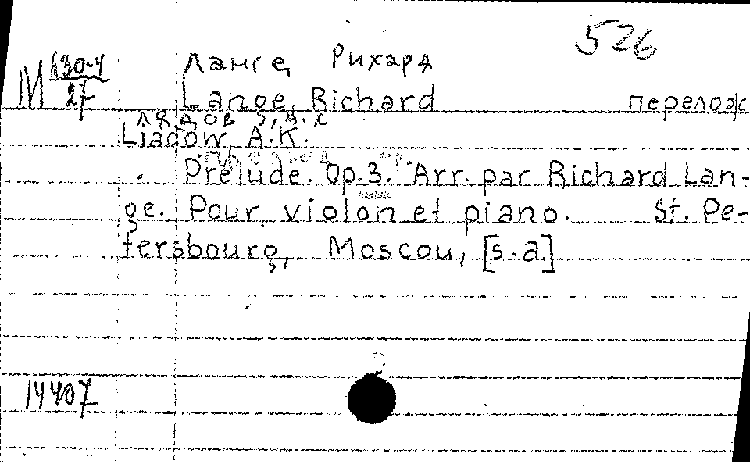 526
Ланге, Рихард
М 630-4/27
Lange, Richard перелож
Лядов, А.К.
Liadow, A.K.
Prélude. Op. 3. Arr. par Richard Lan-
ge. Pour violon et piano. St. Pe-
tersbourg, Moscou, [s.a.]
14407